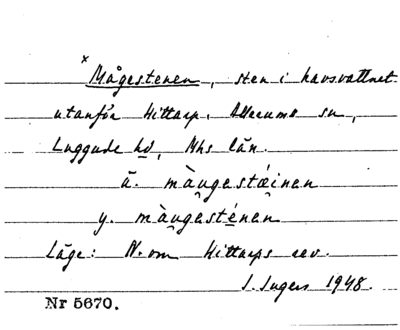 × Mågestenen, sten i havsvattnet
utanför Hittarp. Allerums sn,
Luggude hd, Mhs län.
ä. màu̯gestɑ́i̯nen
y. màu̯gesténen
Läge: N. om Hittarps rev.
I. Ingers 1948.
Nr 5670.